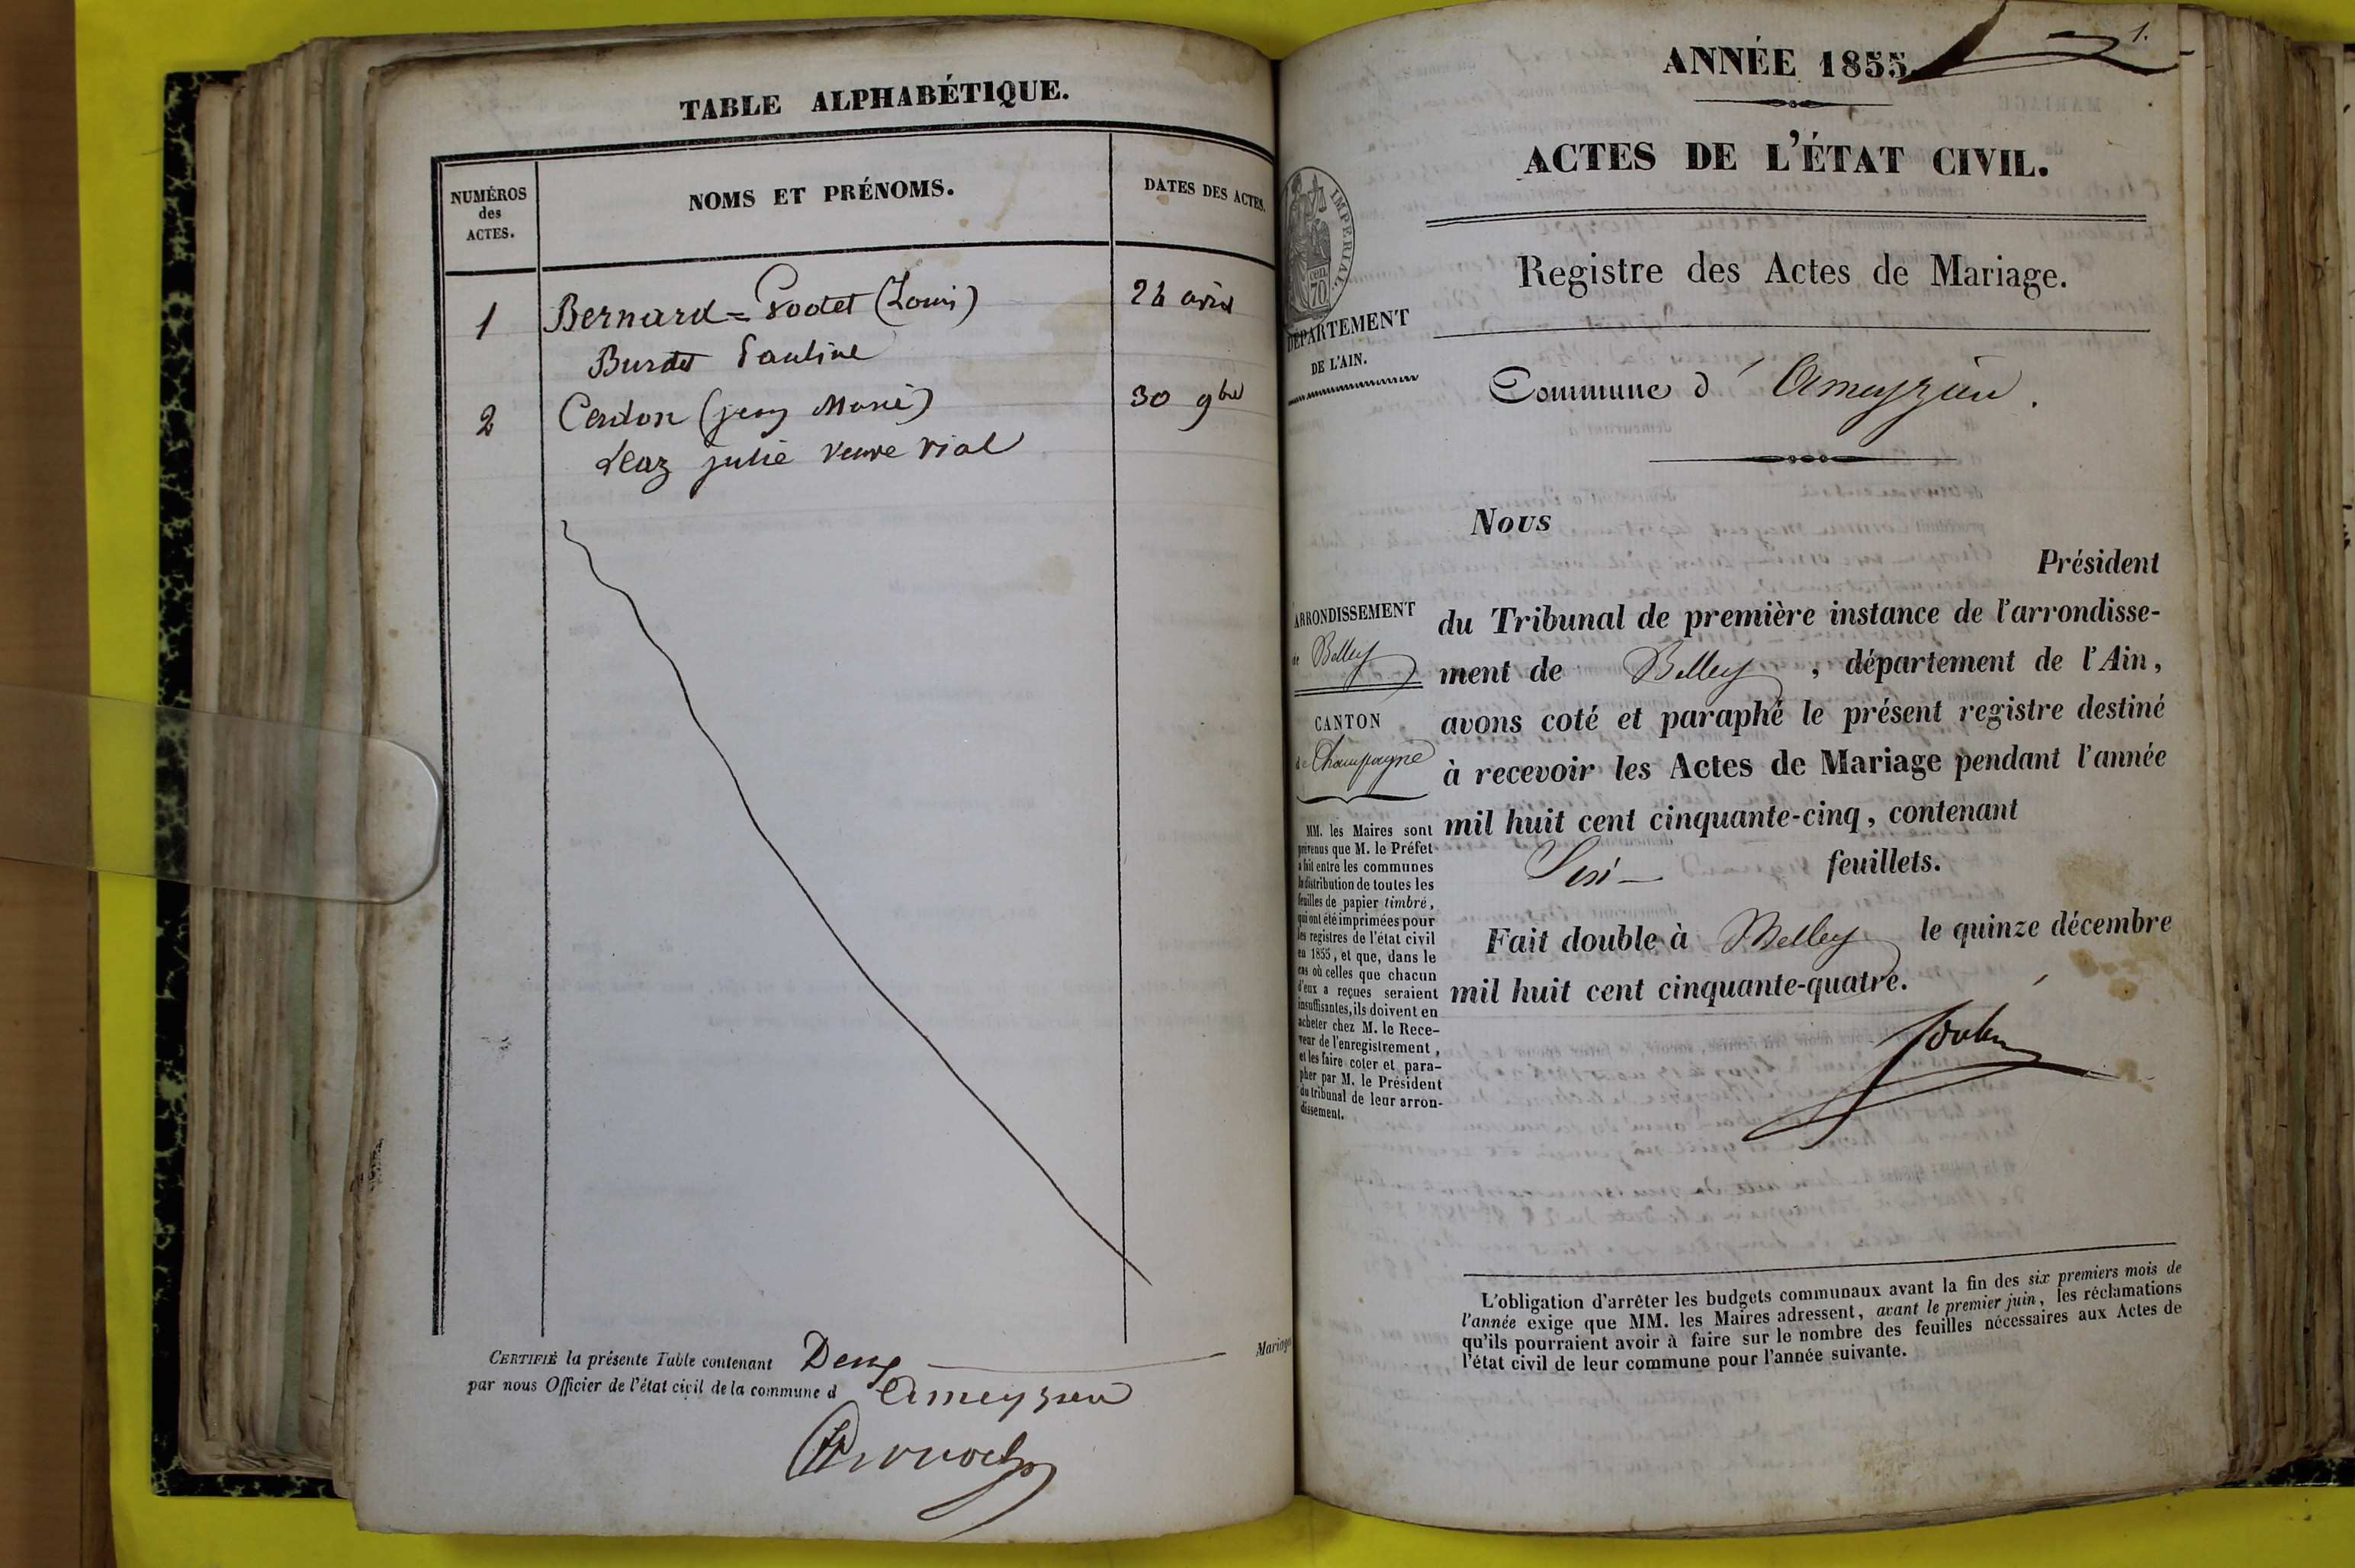 TABLE ALPHABÉTIQUE.
NUMÉROS
des
ACTES.
NOMS ET PRÉNOMS.
DATES DES ACTES.
1 Bernard = Godet (Louis) 26 avril
Burdet Pauline
2 Cerdon (jean Marie) 30 9bre
Deaz julie veuve vial
CERTIFIÉ la présente Table contenant Deux Mariages
par nous Officier de l'état civil de la commune d Ameyzieu
1.
ANNÉE 1855.
ACTES DE L'ÉTAT CIVIL.
IMPERIAL.
cen.
70
Registre des Actes de Mariage.
DÉPARTEMENT
DE L'AIN.
Commune d' Ameyzieu.
Nous
Président
du Tribunal de première instance de l'arrondisse-
ment de Belley, département de l'Ain,
avons coté et paraphé le présent registre destiné
à recevoir les Actes de Mariage pendant l'année
mil huit cent cinquante-cinq, contenant
Six feuillets.
Fait double à Belley le quinze décembre
mil huit cent cinquante-quatre.
ARRONDISSEMENT
de Belley
CANTON
de Champagne
MM. les Maires sont
prévenus que M. le Préfet
a fait entre les communes
la distribution de toutes les
feuilles de papier timbré,
qui ont été imprimées pour
les registres de l'état civil
en 1855, et que, dans le
cas où celles que chacun
d'eux a reçues seraient
insuffisantes, ils doivent en
acheter chez M. le Rece-
veur de l'enregistrement,
et les faire coter et para-
pher par M. le Président
du tribunal de leur arron-
dissement.
L'obligation d'arrêter les budgets communaux avant la fin des six premiers mois de
l'année exige que MM. les Maires adressent, avant le premier juin, les réclamations
qu'ils pourraient avoir à faire sur le nombre des feuilles nécessaires aux Actes de
l'état civil de leur commune pour l'année suivante.